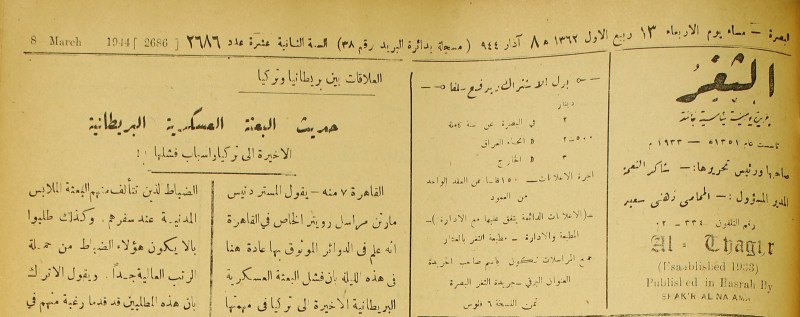 البصرة — مساء يوم الاربعاء ١٣ ربيع الاول ١٣٦٣ ه ٨ آذار ٩٤٤ (مسجلة بدائرة البريد رقم ٣٨) السنة الثانية عشرة عدد ٢٦٨٦
8 March 1944 [ 2686 ]
الثغر
يومية سياسية جامعة
تأسست عام ١٣٥١ ه — ١٩٣٣ م
صاحبها ورئيس تحريرها: — شاكر النعمة
المدير المسؤول: — المحامي زهدي سعيد
رقم التلفون
Al - Thagir
(Esaablished 1933)
Published in Basrah By
SHAKIR AL NAAMA
بدل الاشتراك ويدفع سلفا
دينار
٢ في البصرة عن سنة كاملة
٢-٥٠٠ » انحاء العراق
٣ » الخارج
اجرة الاعلانات — ١٥٠ فلسا عن العقد الواحد
من العمود
—(الاعلانات الدائمة يتفق عليها مع الادارة)—
المطبعة والادارة — مطبعة الثغر بالعشار
جميع المراسلات تكون باسم صاحب الجريدة
العنوان البرقي — جريدة الثغر البصرة
ثمن النسخة ٦ فلوس
العلاقات بين بريطانيا وتركيا
حديث البعثة العسكرية البريطانية
الاخيرة الى تركيا واسباب فشلها !!
القاهرة ٧ منه — يقول المستر دنيس
مارتن مراسل رويتر الخاص في القاهرة
انه علم في الدوائر الموثوق بها عادة هنا
في هذه الليلة بان فشل البعثة العسكرية
البريطانية الاخيرة الى تركيا في مهمتها
الضباط الذين تتألف منهم البعثة الملابس
المدنية عند سفرهم. وكذلك طلبوا
بالا يكون هؤلاء الضباط من حملة
الرتب العالية جداً. ويقول الاتراك
بان هذه المطلبين قد قدما رغبة منهم في